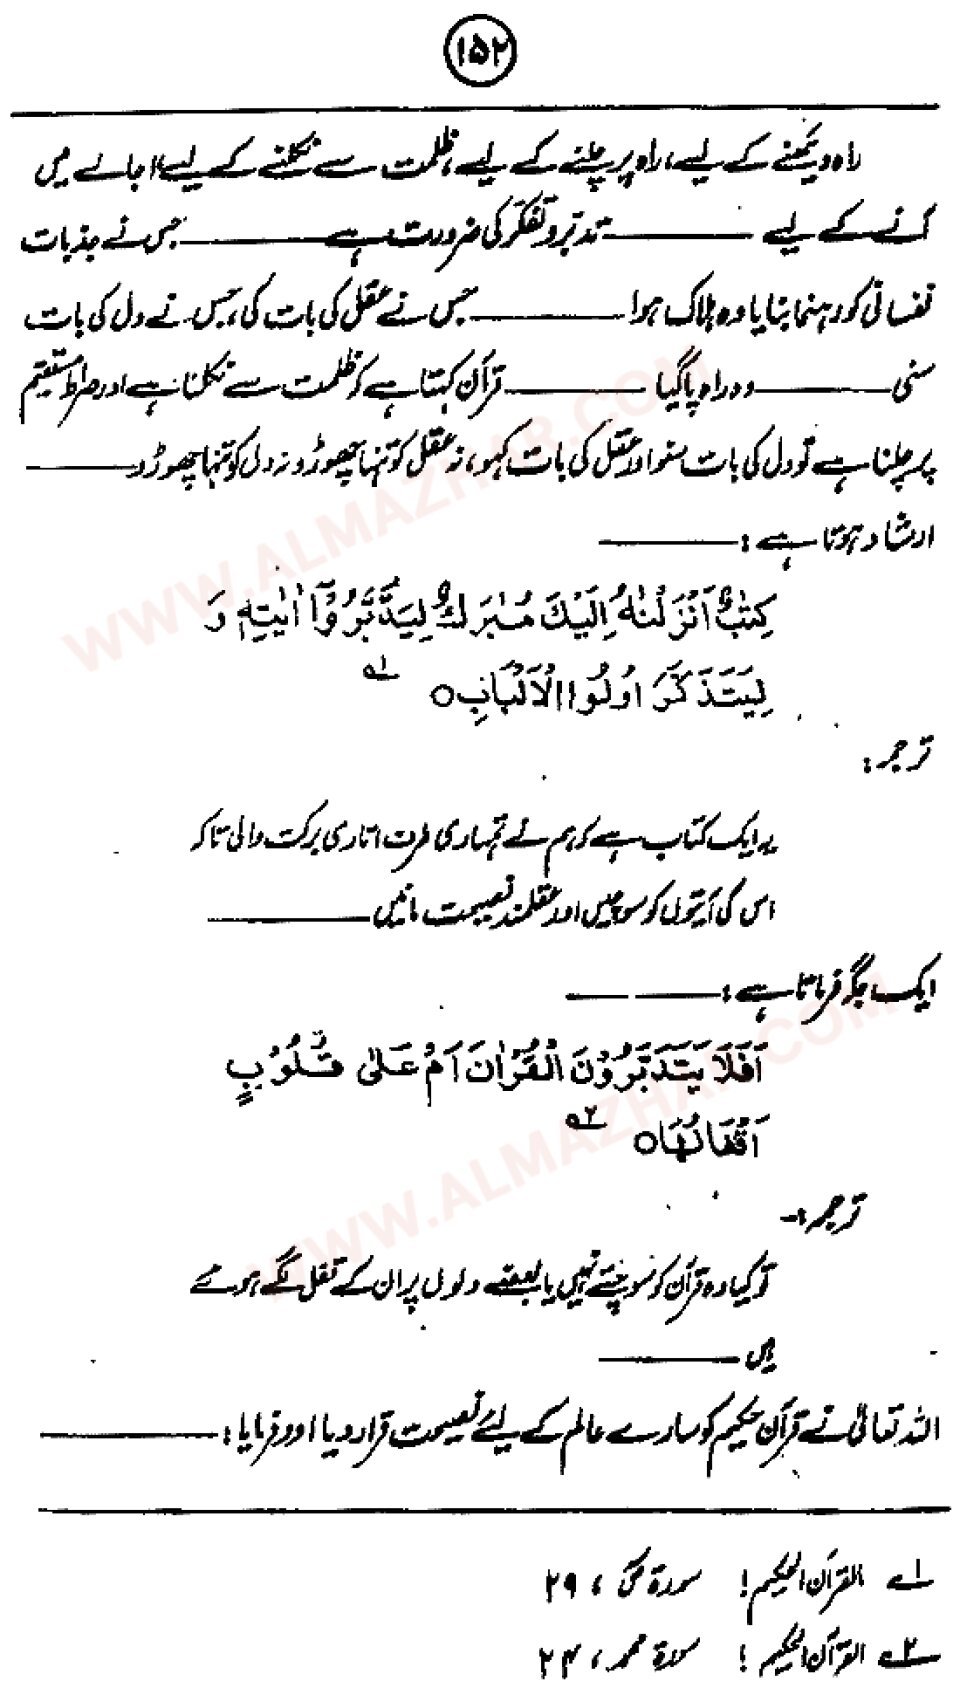 ۱۵۲
راہ دیکھنے کے لیے، راہ پر چلنے کے لیے، ظلمت سے نکلنے کے لیے، اجالے میں
آنے کے لیے ——— تدبر و تفکّر کی ضرورت ہے ——— جس نے جذبات
نفسانی کو رہنما بنایا وہ ہلاک ہوا ——— جس نے عقل کی بات کی، جس نے دل کی بات
سنی ——— وہ راہ پا گیا ——— قرآن کہتا ہے کہ ظلمت سے نکلنا ہے اور صراط مستقیم
پر چلنا ہے تو دل کی بات سنو اور عقل کی بات کہو، نہ عقل کو تنہا چھوڑو نہ دل کو تنہا چھوڑو ———
ارشاد ہوتا ہے : ———
كِتٰبٌ اَنْزَلْنٰهُ اِلَيْكَ مُبٰرَكٌ لِيَدَّبَّرُوْۤا اٰيٰتِهٖ وَ
لِيَتَذَكَّرَ اُولُوا الْاَلْبَابِ ○ ۱؎
ترجمہ :
یہ ایک کتاب ہے کہ ہم نے تمہاری طرف اتاری برکت والی تاکہ
اس کی آیتوں کو سوچیں اور عقلمند نصیحت مانیں ———
ایک جگہ فرماتا ہے : ——— ———
اَفَلَا يَتَدَبَّرُوْنَ الْقُرْاٰنَ اَمْ عَلٰى قُلُوْبٍ
اَقْفَالُهَا ○ ۲؎
ترجمہ :-
تو کیا وہ قرآن کو سوچتے نہیں یا بعضے دلوں پر ان کے قفل لگے ہوئے
ہیں ———
اللہ تعالیٰ نے قرآن حکیم کو سارے عالم کے لیے نصیحت قرار دیا اور فرمایا : ———
۱؎ القرآن الحکیم ! سورۃ ص ، ۲۹
۲؎ القرآن الحکیم ! سورۃ محمد ، ۲۴
WWW.ALMAZHAR.COM
WWW.ALMAZHAR.COM